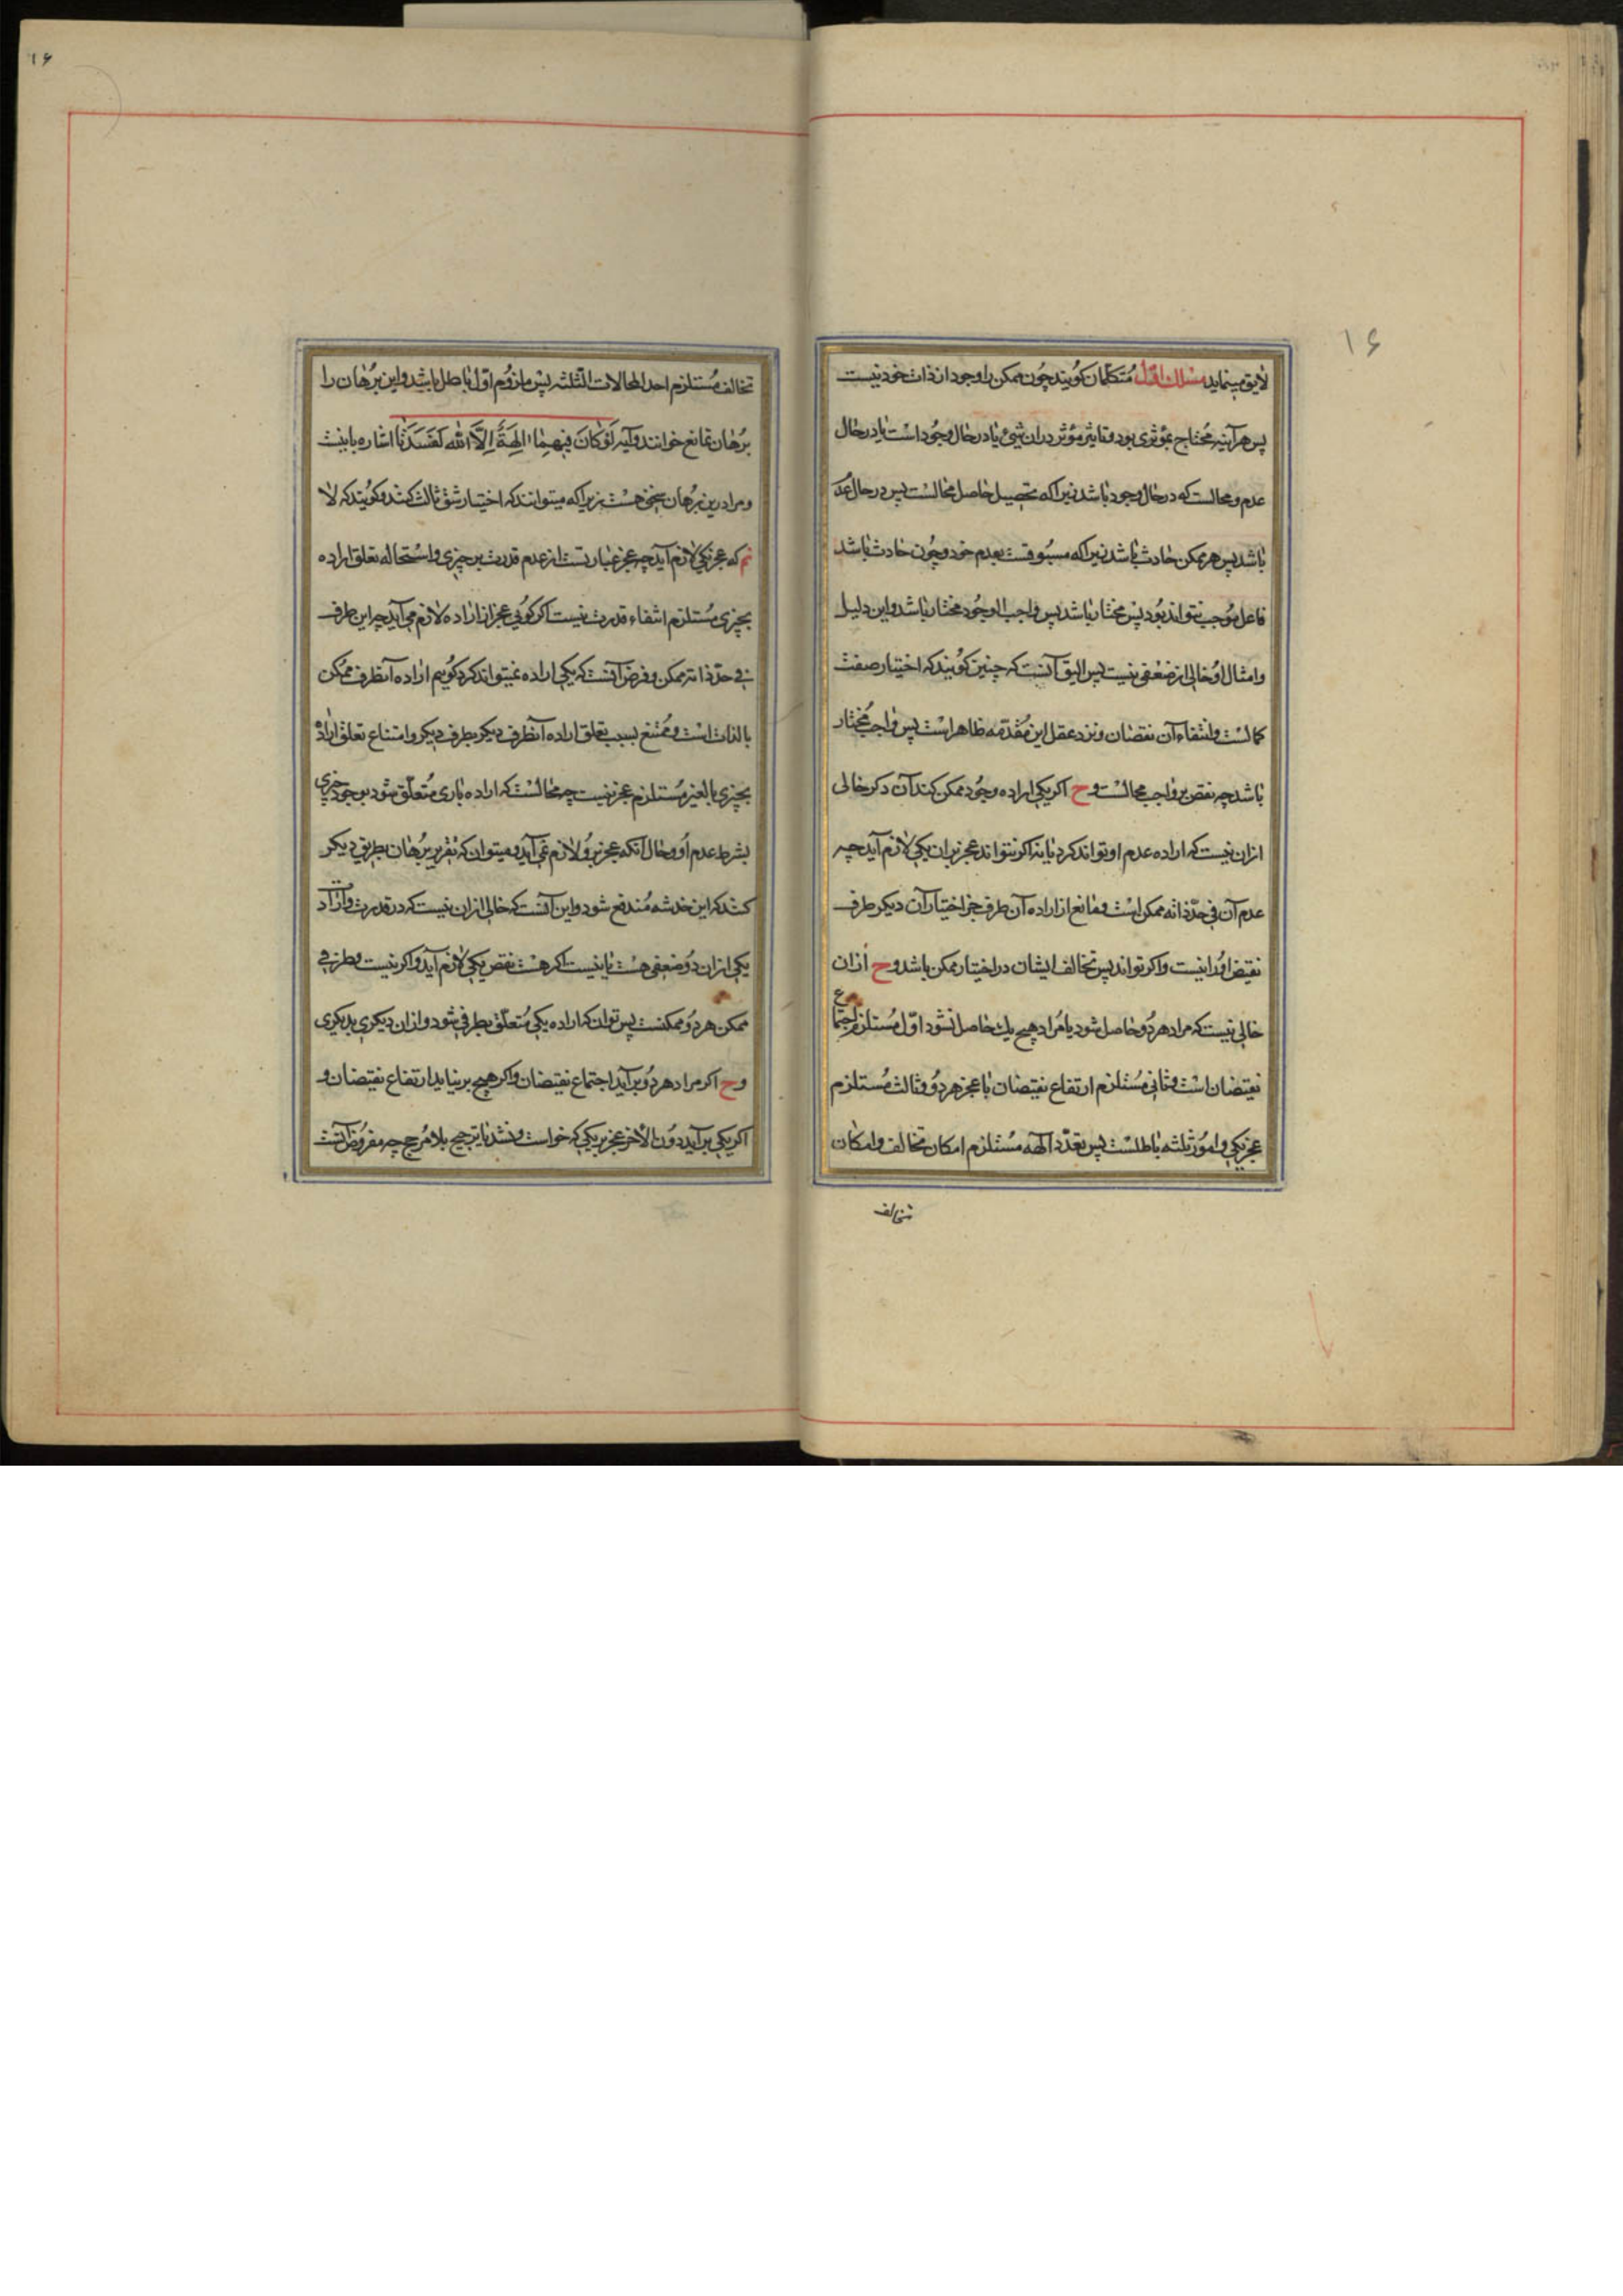 ۱۶
لایق مینماید مسلك اوّل متکلمان کویند چون ممکن را وجود از ذات خود نیست
پس هر آینه محتاج بمؤثری بود و تاثیر مؤثر دران شیئ یا در حال وجود است یا در حال
عدم و محالست که در حال وجود باشد زیرا که تحصیل حاصل محالست پس در حال عد
باشد پس هر ممکن حادث باشد زیرا که مسبوقست بعدم خود و چون حادث باشد
فاعل موجب نتواند بود پس مختار باشد پس واجب الوجود مختار باشد و این دلیل
و امثال او خالی از ضعفی نیست پس الیق آنست که چنین کویند که اختیار صفت
کمالست و انتفاء آن نقصان و نزد عقل این مقدمه ظاهر است پس واجب مختار
باشد چه نقص بر واجب محالست وح اکر یکی اراده وجود ممکن کند آن دکر خالی
ازان نیست که اراده عدم او تواند کرد یا نه اکر نتواند عجز بران یکی لازم آید چه
عدم آن فی حدّ ذاته ممکن است و مانع از اراده آن طرف جز اختیار آن دیکر طرف
نقیض او را نیست و اکر تواند پس تخالف ایشان در اختیار ممکن باشد وح ازان
خالی نیست که مراد هر دو حاصل شود یا مراد هیچ یك حاصل نشود اوّل مستلزم اجتماع
نقیضان است و ثانی مستلزم ارتفاع نقیضان با عجز هر دو و ثالث مستلزم
عجز یکی و امور ثلثه باطلست پس تعدّد الهه مستلزم امکان تخالف و امکان
تخالف
۱۶
تخالف مستلزم احد المحالات الثلثه پس ملزوم اوّل باطل باشد و این برهان را
برهان تمانع خوانند و آیه لَوْ كَانَ فِيهِمَا الِهَةٌ اِلَّا اللّٰه لَفَسَدَتَا اشاره باینست
و مرا درین برهان سخنی هست زیرا که میتوانند که اختیار شق ثالث کنند و کویند که لا
نم که عجز یکی لازم آید چه عجز عبارتست از عدم قدرت بر چیزی و استحاله تعلق اراده
بچیزی مستلزم انتفاء قدرت نیست اکر کوئی عجز از اراده لازم می آید چه این طرف
فی حدّ ذاته ممکن و فرض آنست که یکی اراده نمیتواند کرد کویم اراده آنطرف ممکن
بالذات است و ممتنع بسبب تعلق اراده آنطرف دیکر بطرف دیکر و امتناع تعلق اراده
بچیزی بالغیر مستلزم عجز نیست چه محالست که اراده باری متعلّق شود بوجود چیزی
بشرط عدم او و حال آنکه عجز برو لازم نمی آید و میتوان که تقریر برهان بطریق دیکر
کنند که این خدشه مندفع شود و این آنست که خالی ازان نیست که در قدرت و اراد
یکی ازان دو ضعفی هست یا نیست اکر هست نقص یکی لازم آید و اکر نیست و طرفی
ممکن هر دو ممکنست پس توان که اراده یکی متعلّق بطرفی شود و ازان دیکری بدیکری
وح اکر مراد هر دو بر آید اجتماع نقیضان و اکر هیچ بر نیاید ارتفاع نقیضان و
اکر یکی بر آید دون الاخر عجز بر یکی که خواست و نشد یا ترجیح بلا مرجح چه مفروض آنست